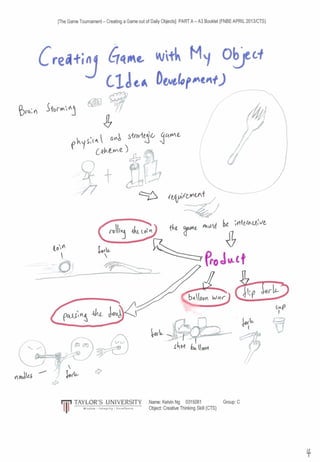 [The Game Tournament – Creating a Game out of Daily Objects]: PART A – A3 Booklet (FNBE APRIL 2013/CTS)
Creating Game with My Object
(Idea Development)
Brain Storming
physical and strategic game
(theme)
requirement
the game must be interactive
rolling the coin
coin
fork
Product
balloon war
flip fork
passing the food
cup
fork
fork
shoe balloon
noodles
fork
TAYLOR'S UNIVERSITY
Wisdom · Integrity · Excellence
Name: Kelvin Ng 0315081 Group: C
Object: Creative Thinking Skill (CTS)
4